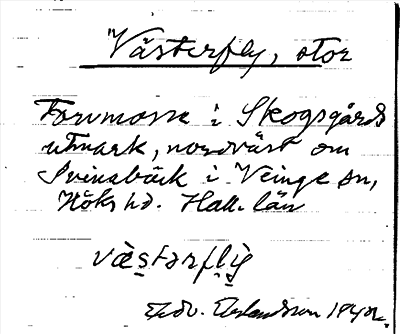 Västerfly, stor
Torvmosse i Skogsgårds
utmark, nordväst om
Svinabäck i Veinge sn,
Höks hd. Hall. län
væ̀stərflẏ
Edv. Erlandsson 1942.